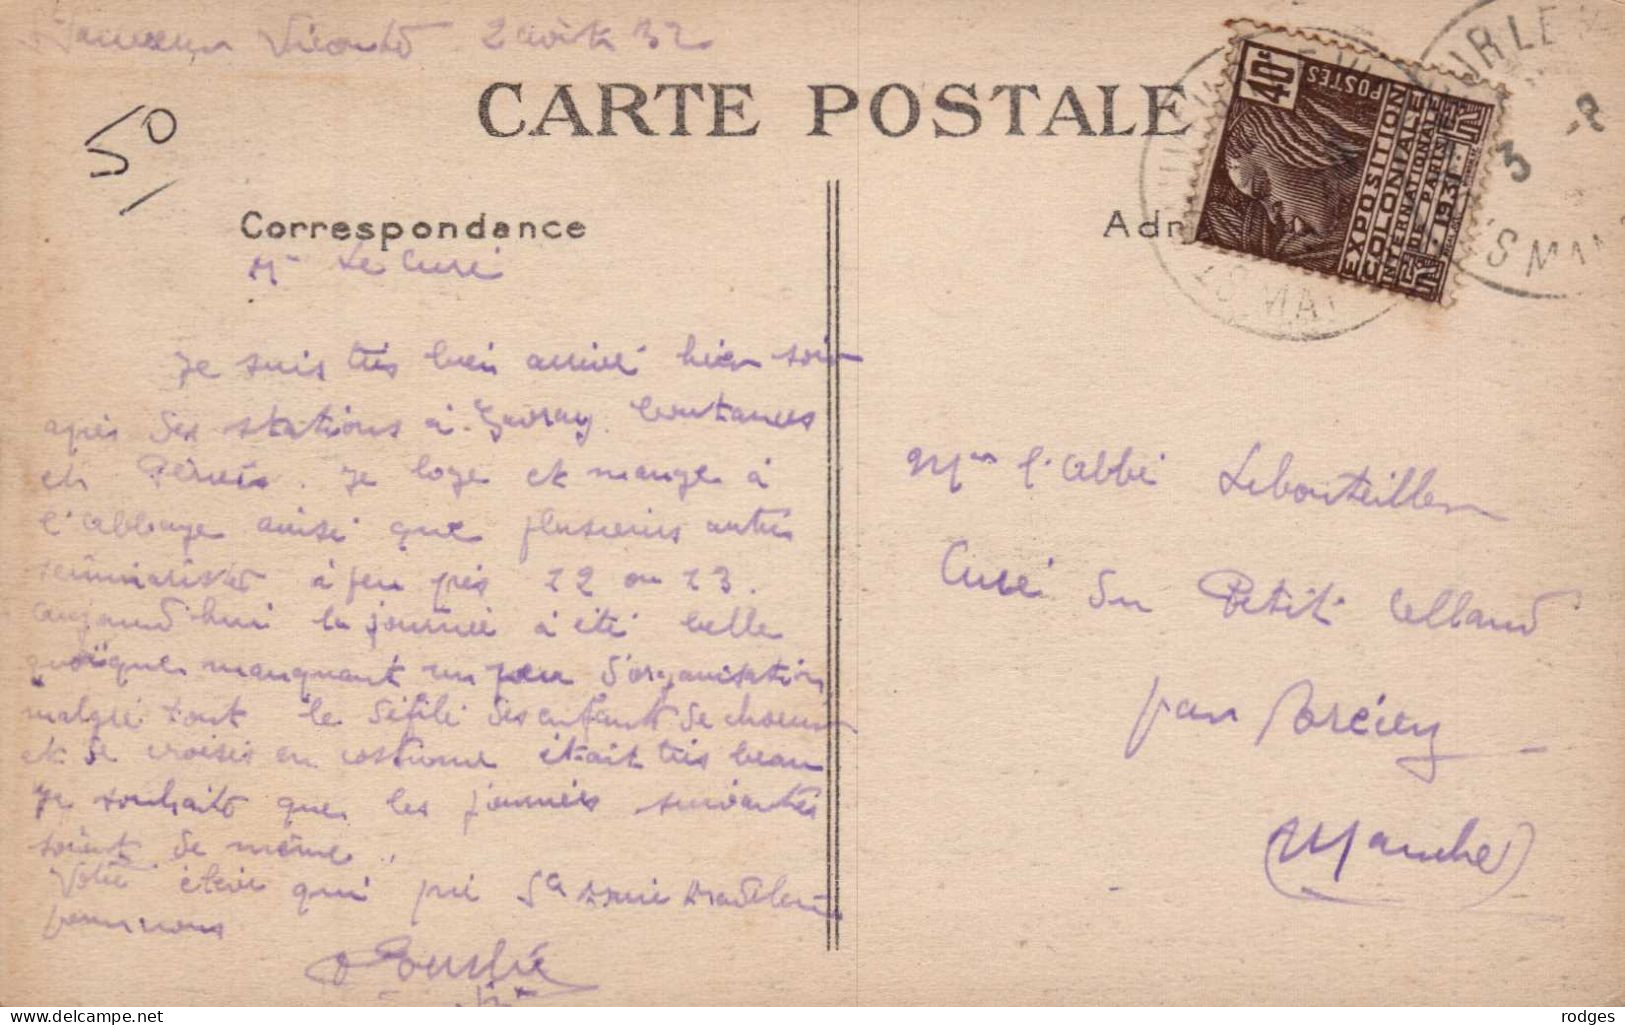 Vicomte 2 août 32
CARTE POSTALE
50
Correspondance
Mr Le Curé
Je suis très bien arrivé hier soir
après des stations à Gavray. Coutances
et Périers. Je loge et mange à
l'abbaye ainsi que plusieurs autres
séminaristes à peu près 12 ou 13.
aujourd'hui la journée a été belle
quoique manquant un peu d'organisation
malgré tout le défilé des enfants de choeur
et de croisés en costume était très beau
Je souhaite que les journées suivantes
soient de même.
Votre élève qui prie Ste Marie Madeleine
pour vous
40c
POSTES
EXPOSITION
COLONIALE
INTERNATIONALE
DE PARIS
1931
3 -8
Mr l'abbé Lebouteiller
Curé du Petit Celland
par Brécey
(Manche)
delcampe.net
rodges